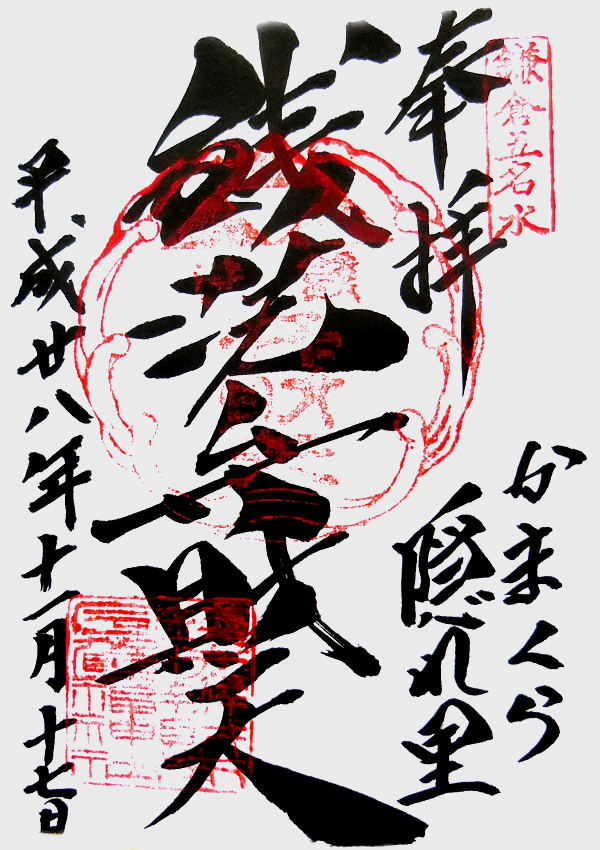 鎌倉五名水
奉拝
かまくら
隠れ里
銭洗弁財天
平成廿八年十一月十七日